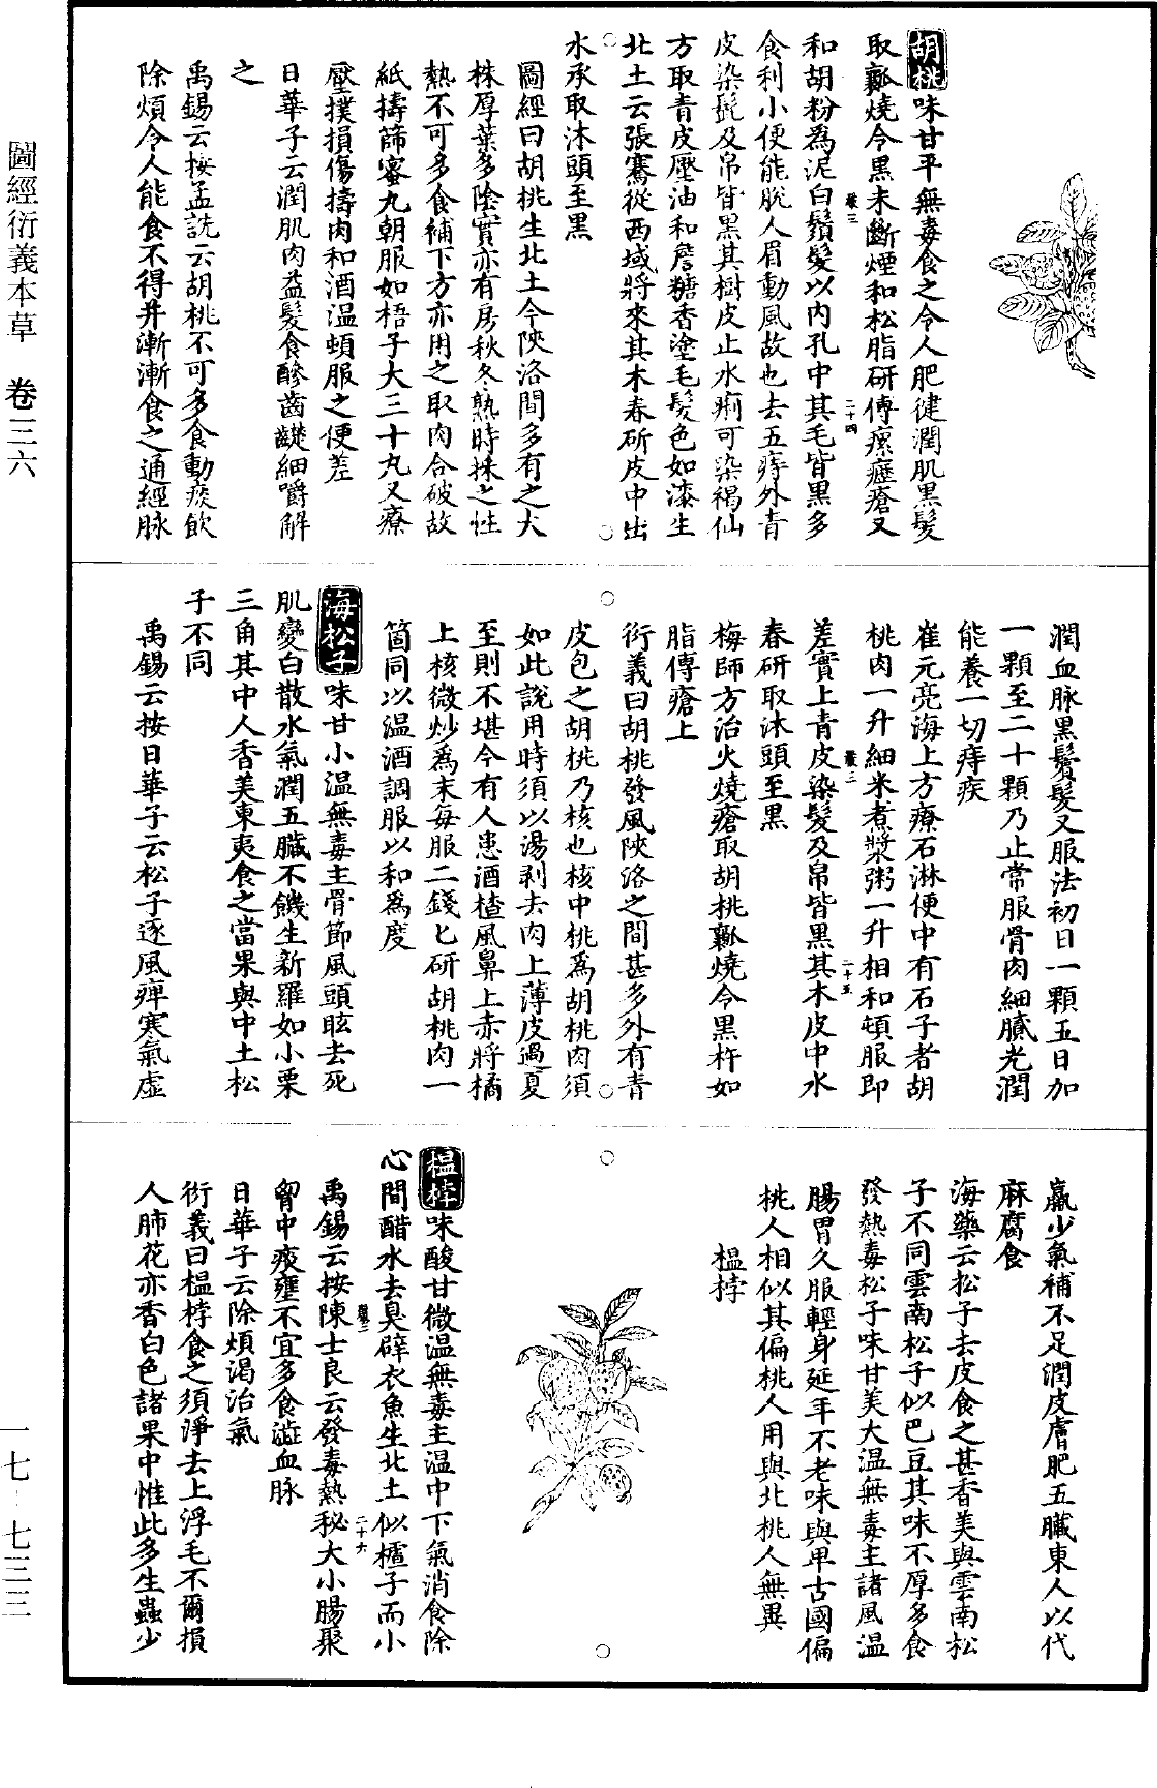 胡桃味甘平無毒食之令人肥健潤肌黑髮
取瓤燒令黑未斷煙和松脂研傅瘰癧瘡又
和胡粉為泥白鬚髮以內孔中其毛皆黑多
食利小便能脫人眉動風故也去五痔外青
皮染髭及帛皆黑其樹皮止水痢可染褐仙
方取青皮壓油和詹糖香塗毛髮色如漆生
北土云張騫從西域將來其木春斫皮中出
水承取沐頭至黑
圖經曰胡桃生北土今陝洛間多有之大
株厚葉多陰實亦有房秋冬熟時採之性
熱不可多食補下方亦用之取肉合破故
紙擣篩蜜丸朝服如梧子大三十丸又療
壓撲損傷擣肉和酒温頓服之便差
日華子云潤肌肉益髮食酸齒齼細嚼解
之
禹錫云按孟詵云胡桃不可多食動痰飲
除煩令人能食不得并漸漸食之通經脉
潤血脉黑鬢髮又服法初日一顆五日加
一顆至二十顆乃止常服骨肉細膩光潤
能養一切痔疾
崔元亮海上方療石淋便中有石子者胡
桃肉一升細米煮漿粥一升相和頓服即
差實上青皮染髮及帛皆黑其木皮中水
春研取沐頭至黑
梅師方治火燒瘡取胡桃瓤燒令黑杵如
脂傅瘡上
衍義曰胡桃發風陝洛之間甚多外有青
皮包之胡桃乃核也核中桃為胡桃肉須
如此說用時須以湯剥去肉上薄皮過夏
至則不堪今有人患酒楂風鼻上赤將橘
上核微炒為末每服二錢匕研胡桃肉一
箇同以温酒調服以和為度
海松子味甘小温無毒主骨節風頭眩去死
肌變白散水氣潤五臟不饑生新羅如小栗
三角其中人香美東夷食之當果與中土松
子不同
禹錫云按日華子云松子逐風痺寒氣虛
羸少氣補不足潤皮膚肥五臟東人以代
麻腐食
海藥云松子去皮食之甚香美與雲南松
子不同雲南松子似巴豆其味不厚多食
發熱毒松子味甘美大温無毒主諸風温
腸胃久服輕身延年不老味與卑古國偏
桃人相似其偏桃人用與北桃人無異
榲桲
榲桲味酸甘微温無毒主温中下氣消食除
心間醋水去臭辟衣魚生北土似櫨子而小
禹錫云按陳士良云發毒熱秘大小腸聚
胷中痰壅不宜多食澁血脉
日華子云除煩渴治氣
衍義曰榲桲食之須淨去上浮毛不爾損
人肺花亦香白色諸果中惟此多生蟲少
圖經衍義本草　卷三六
一七—七三三
二十四
二十五
二十六